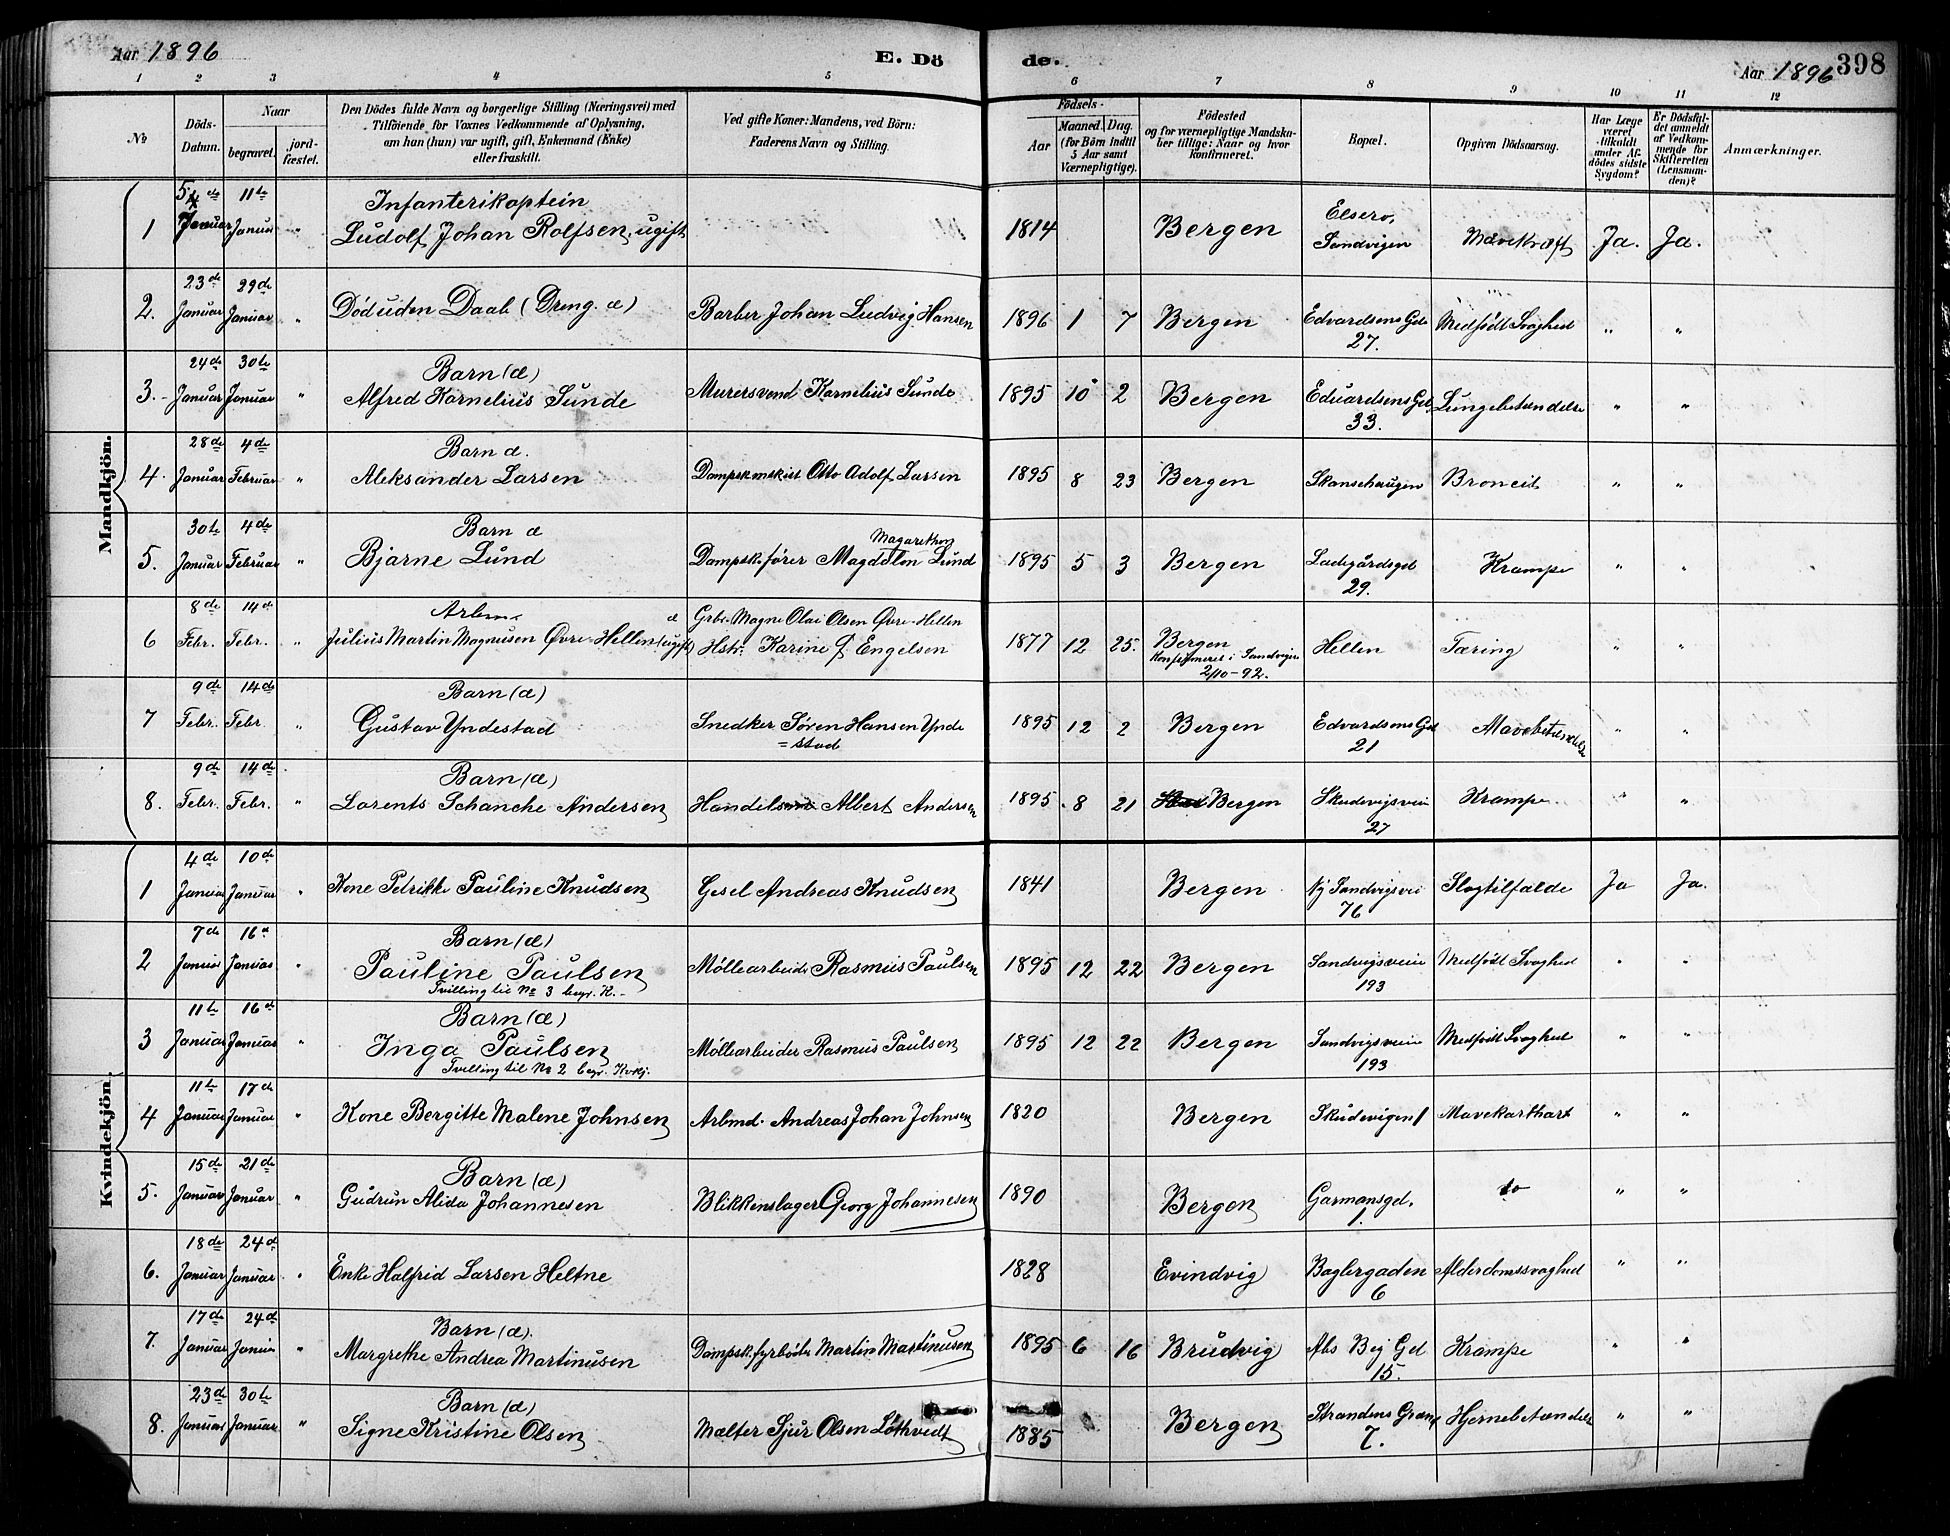 Aar 1896 E. Dö
de. Aar 1896 398
1 2 3 4 5 6 7 8 9 10 11 12
№ Döds-Datum. Naar begravet. jordfæstet. Den Dödes fulde Navn og borgerlige Stilling (Næringsvei) med Tilföiende for Voxnes Vedkommende af Oplysning, om han (hun) var ugift, gift, Enkemand (Enke) eller fraskilt. Ved gifte Koner: Mandens, ved Börn: Faderens Navn og Stilling. Födsels- Aar Maaned. Dag. (for Börn indtil 5 Aar samt Værnepligtige). Födested og for værnepligtige Mandskaber tillige: Naar og hvor konfirmeret. Bopæl. Opgiven Dödsaarsag. Har Læge været tilkaldt under Afdödes sidste Sygdom? Er Dödsfaldet anmeldt af Vedkommende for Skifteretten (Lensmanden)? Anmærkninger.
Mandkjön.
1 5te Januar 11te Januar " Infanterikaptein Ludolf Johan Rolfsen, ugift 1814 Bergen Elsero, Sandvigen Mavekræft Ja. Ja.
2. 23de Januar 29de Januar " Död uden Daab (Dreng. æ) Barber Johan Ludvig Hansen 1896 1 7 Bergen Edvardsens Gd. 27. Medfödt Svaghed " "
3. 24de Januar 30te Januar " Barn (æ) Alfred Kornelius Sunde Murersvend Kornelius Sunde 1895 10 2 Bergen Eduardsens Gd. 33. Lungebetændelse " "
4. 28de Januar 4de Februar " Barn æ. Aleksander Larsen Dampskmskist Otto Adolf Larsen 1895 8 23 Bergen Skansehaugen Broncit " "
5. 30te Januar 4de Februar " Barn æ Bjarne Lund Dampsk.förer Magdelon Lund 1895 5 3 Bergen Ladegårdsgd 29. Krampe " "
6 8de Febr. 14de Febr. " Arbm. æ Julius Martin Magnusen Øvre-Hellen (ugift) Grbr. Magne Olai Olsen Øvre-Hellen Hstr. Karine f. Engelsen 1877 12 25. Bergen Konfirmeret i Sandvigen 2/10-92. Hellen Tæring " "
7 9de Febr. 14de Febr. " Barn (æ) Gustav Yndestad Snedker Sören Hansen Ynde=stad 1895 12 2 Bergen Edvardsens Gd 21 Mavebetændelse " "
8. 9de Febr. 14de Febr. " Barn (æ) Lorents Schanche Andersen Handelsmd Albert Andersen 1895 8 21 Bergen Skudevigsveien 27 Krampe " "
Kvindekjön.
1 4de Januar 10de Januar " Kone Petrikke Pauline Knudsen Gesel Andreas Knudsen 1841 Bergen Ny Sandvigsvei 76 Slagtilfælde Ja Ja.
2 7de Januar 16de Januar " Barn (æ) Pauline Paulsen Tvilling til № 3 begr. K.- Möllearbeider Rasmus Paulsen 1895 12 22 Bergen Sandvigsveien 193 Medfödt Svaghed " "
3 11te Januar 16de Januar " Barn (æ) Inga Paulsen Tvilling til № 2 begr. Kvkj. Möllearbeider Rasmus Paulsen 1895 12 22 Bergen Sandvigsveien 193 Medfödt Svaghed " "
4 11te Januar 17de Januar " Kone Bergitte Malene Johnsen Arbmd. Andreas Johan Johnsen 1820 Bergen Skudevigen 1 Mavekarthar " "
5. 15de Januar 21de Januar " Barn (æ) Gudrun Alida Johannesen Blikkenslager Georg Johannesen 1890 Bergen Garmansgd. 1. do " "
6. 18de Januar 24de Januar " Enke Halfrid Larsen Heltne 1828 Evindvig Baglergaden 6 Alderdomssvaghed " "
7. 17de Januar 24de Januar " Barn (æ). Margrethe Andrea Martinusen Dampsk.fyrböder Martin Martinusen 1895 6 16 Brudvig Abs Bej Gd 15. Krampe " "
8. 23de Januar 30te Januar " Barn (æ) Signe Kristine Olsen Mælter Sjur Olsen Löthvedt 1885 Bergen Strandens Grænd 7. Hjernebetændelse " "